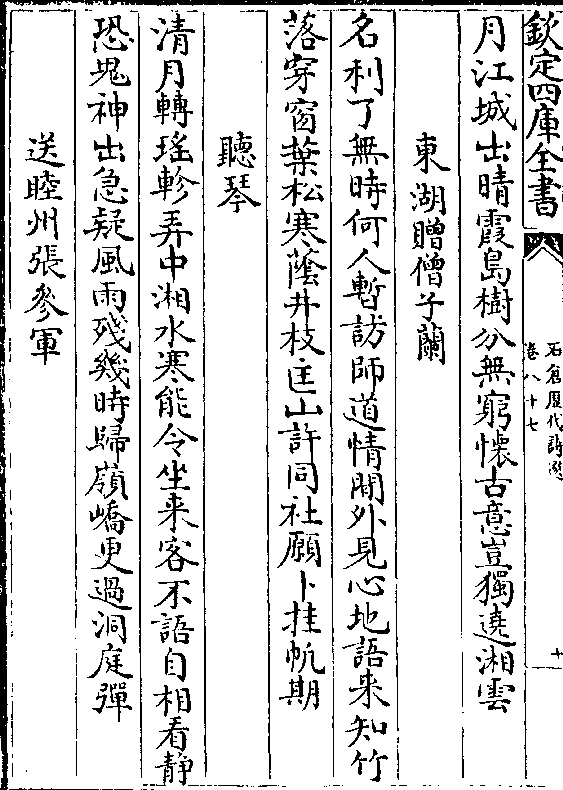 欽定四庫全書
石倉歴代詩選
卷八十七
十
月江城出晴霞島樹分無窮懷古意豈獨遶湘雲
東湖贈僧子蘭
名利了無時何人暫訪師道情閒外見心地語来知竹
落穿窗葉松寒蔭井枝匡山許同社願卜挂帆期
聽琴
清月轉瑤軫弄中湘水寒能令坐来客不語自相看静
恐鬼神出急疑風雨殘幾時歸嶺嶠更過洞庭彈
送睦州張參軍